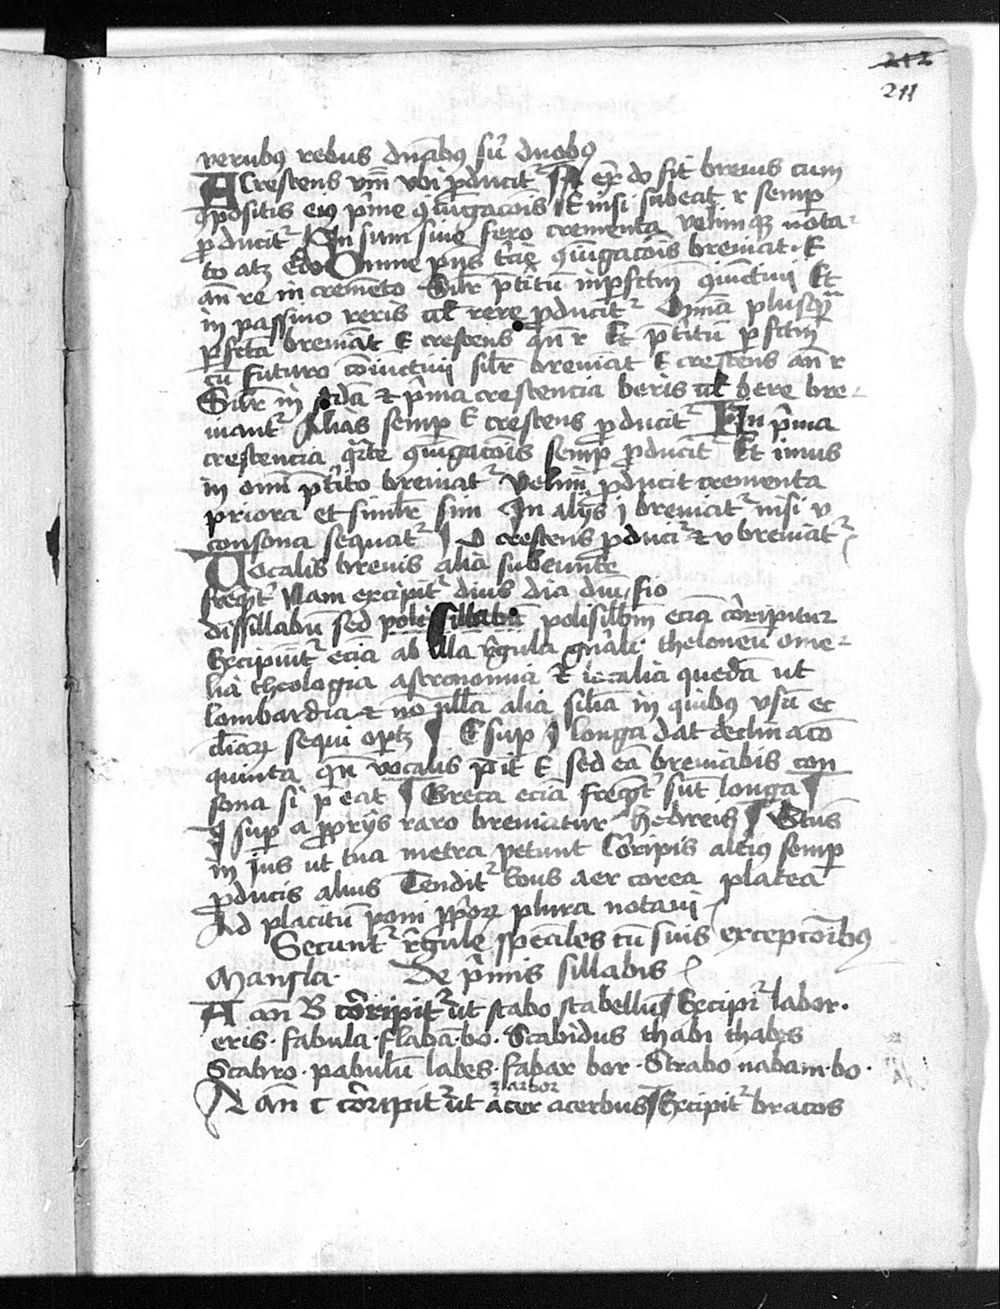 212
211
verubꝰ rebus duābꝰ sūt duobꝰ
Acrescens vm̄ vbi ꝓducit᷑ A ex do fit breuis cum
ꝯpositis eiꝰ p̄me ꝯiugacōis E nisi subeat r semꝑ
ꝓducit᷑ In sum siue fero crementa velimqꝫ nota-
to atqꝫ edo Omne pn̄s t̄cie ꝯiugacōis breuiat E
an̄ re in cremēto Silr p̄titū inpfctm ꝯiūctiui Et
in passiuo reris ul rere ꝓducit᷑ Qm̄a plusqr̄
ꝑfcta breuiāt E crescens qn̄ r Et p̄titū ꝑfctm
cū futuro cōiūctiui silr breuiat E crescens an̄ r
Silr in scd̄a ⁊ p̄ma crescencia beris ul bere bre-
uiant᷑ Alias semꝑ E crescens ꝓducit᷑ In p̄ma
crescencia qr̄te ꝯiugacōis semꝑ ꝓducit᷑ Et imus
in om̄i p̄tito breuiat᷑ Velim ꝓducit crementa
priora et similr sim In alijs i breuiat᷑ nisi v
consona sequat᷑ O crescens ꝓduci᷑ ⁊ v breuiat᷑
Vocalis breuis alia subeunte
freqt᷑ Nam excipit᷑ dius dia diū fio
dissillabū sed poli sillabū polisillm ecia cōripitur
Excipiūt᷑ ecia ab illa r̄gula gn̄ali theloneū ome-
lia theologia astronomia ⁊ localia quedā ut
lombardia ⁊ nō ulla alia silia in quibꝰ vsū ec
cliaꝝ sequi oportꝫ E suꝑ I longa dat declinacō
quinta qn̄ vocalis p̄it E sed eā breuiabis con
sona si p̄eat Greca ecia freqt᷑ sūt longa
I suꝑ a ꝓprijs raro breuiatur hebreis Gtūs
in jus ut tua metra petunt Cōripis altiꝰ semꝑ
ꝓducis alius Tendit᷑ Eous aer corea platea
Ad placitū poni ꝓpoꝝ plura notaui
Secunt᷑ r̄gule spēales cū suis excepcōibꝰ
Mansla. De p̄mis sillabis
A an̄ B cōripit᷑ ut stabo stabellū Excipi᷑ labor.
eris. fabula. flabā. bo. Scabidus thabi thabes
Scabro. pabulū labes. fabar bor. Strabo nabam. bo.
arbor
A an̄ c cōripit᷑ ut acer acerbus Excipit᷑ bracos